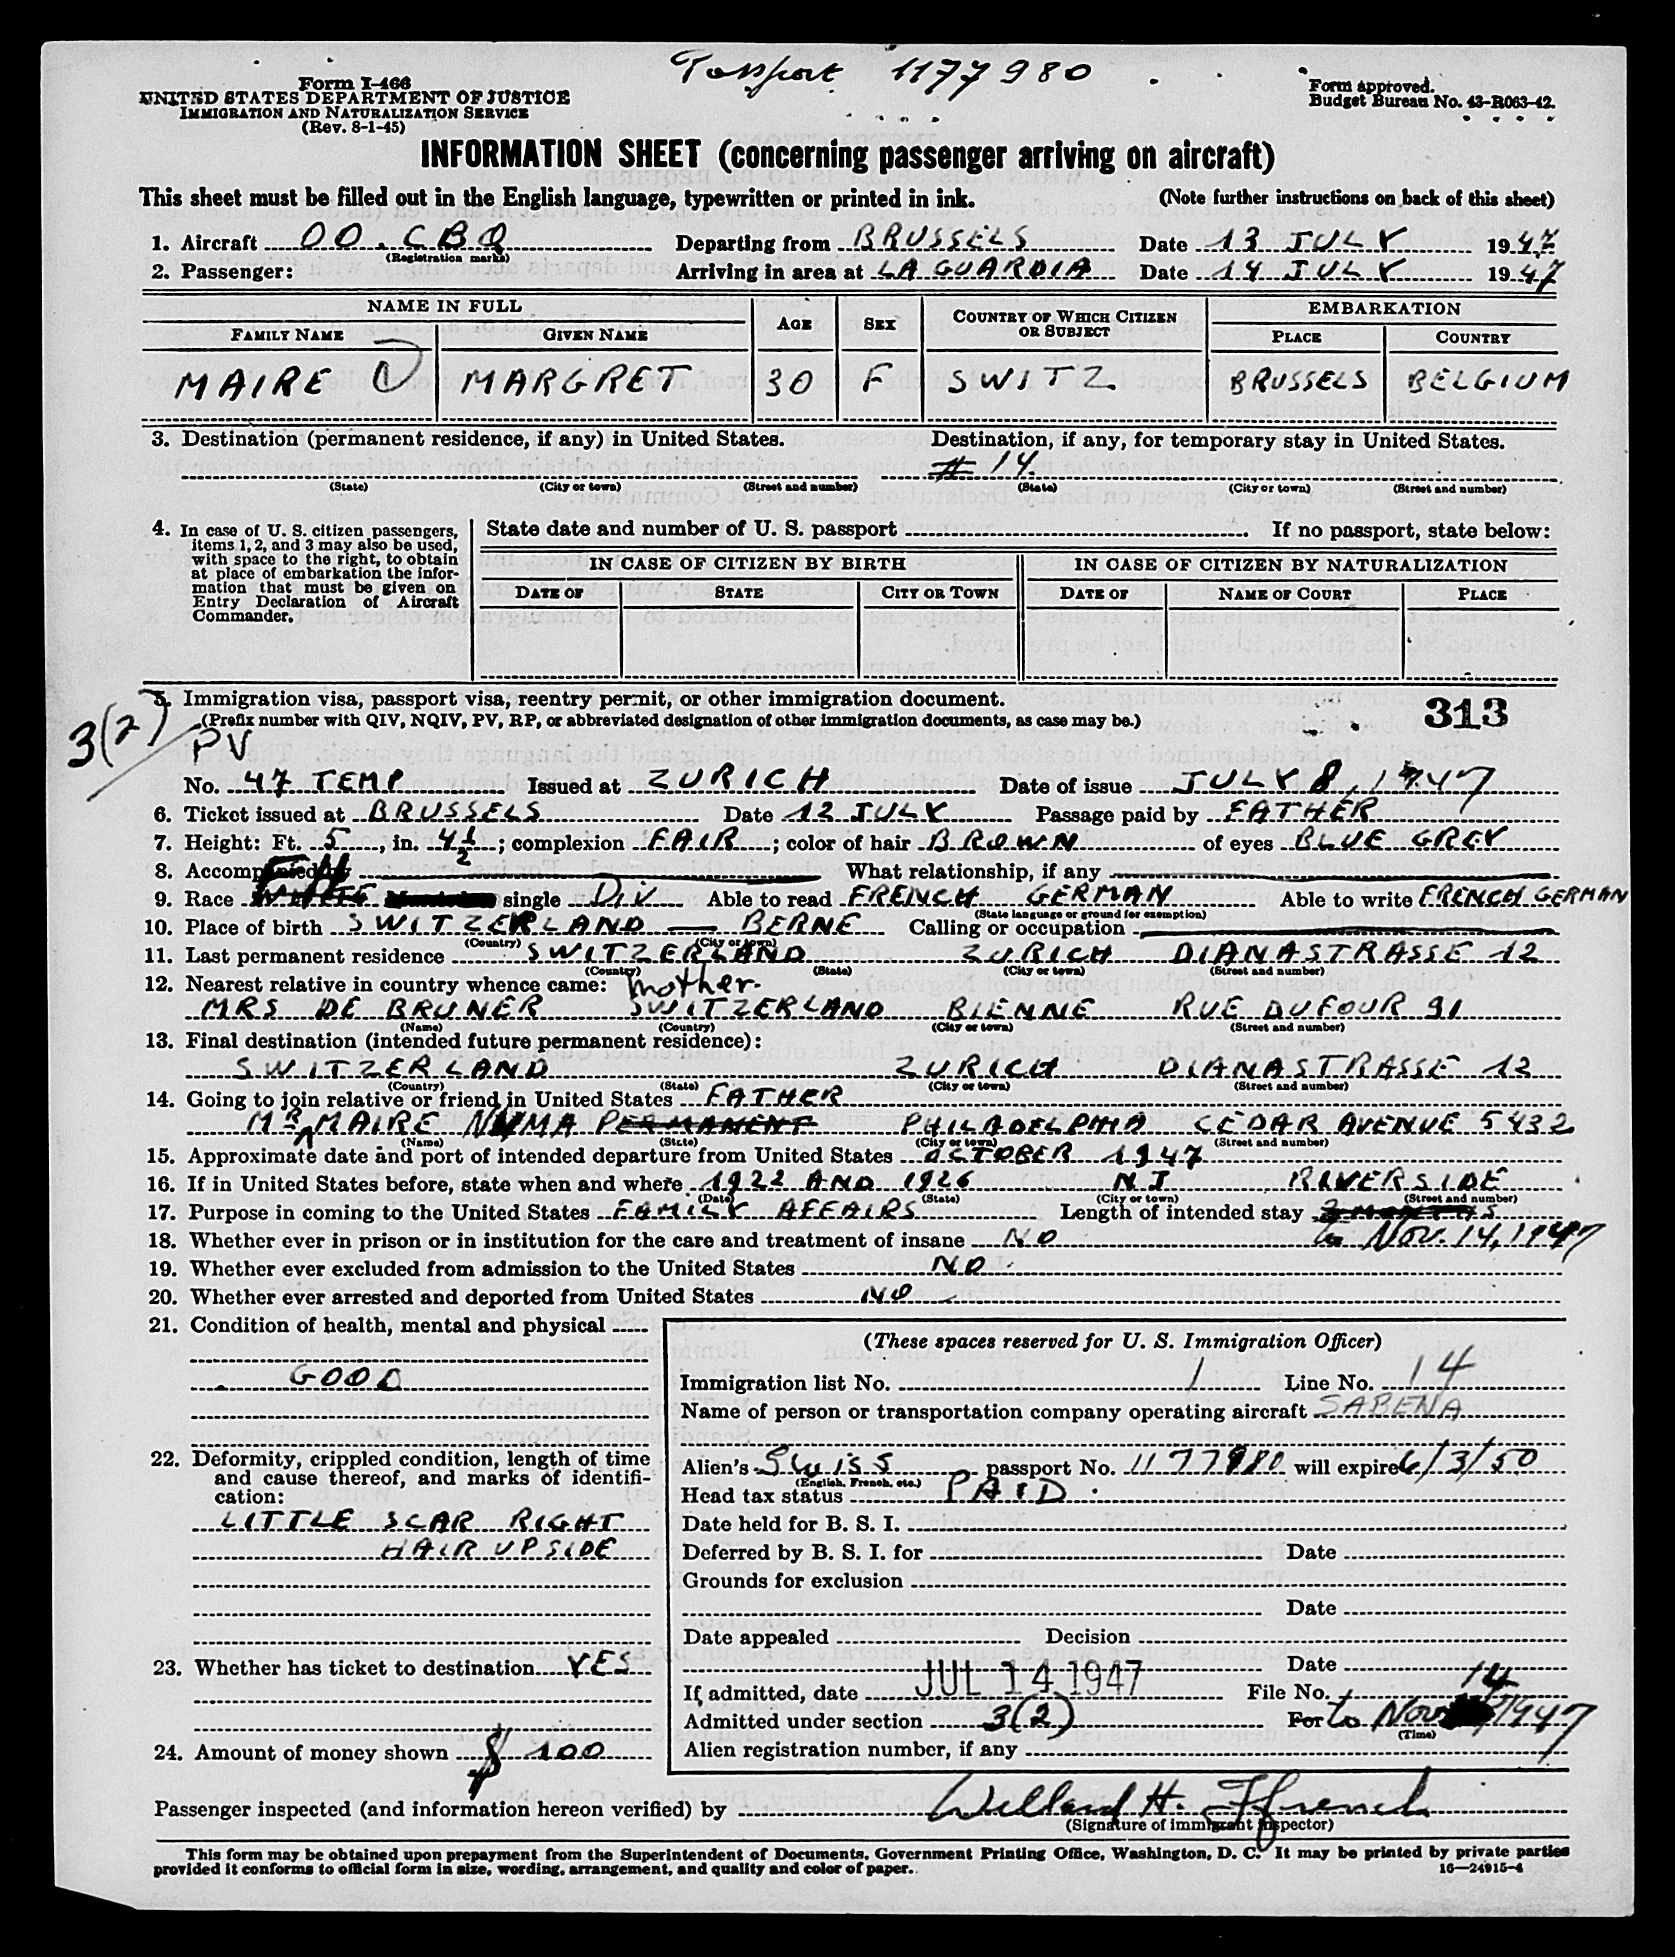 Passport 1177980
Form I-466
UNITED STATES DEPARTMENT OF JUSTICE
IMMIGRATION AND NATURALIZATION SERVICE
(Rev. 8-1-45)
Form approved.
Budget Bureau No. 43-R063-42.
INFORMATION SHEET (concerning passenger arriving on aircraft)
This sheet must be filled out in the English language, typewritten or printed in ink. (Note further instructions on back of this sheet)
1. Aircraft OO.CBQ Departing from BRUSSELS Date 13 JULY 1947
(Registration marks)
2. Passenger: Arriving in area at LA GUARDIA Date 14 JULY 1947
NAME IN FULL AGE SEX COUNTRY OF WHICH CITIZEN OR SUBJECT EMBARKATION
FAMILY NAME GIVEN NAME PLACE COUNTRY
MAIRE MARGRET 30 F SWITZ BRUSSELS BELGIUM
3. Destination (permanent residence, if any) in United States. Destination, if any, for temporary stay in United States.
# 14
(State) (City or town) (Street and number) (State) (City or town) (Street and number)
4. In case of U. S. citizen passengers,
items 1, 2, and 3 may also be used,
with space to the right, to obtain
at place of embarkation the infor-
mation that must be given on
Entry Declaration of Aircraft
Commander.
State date and number of U. S. passport If no passport, state below:
IN CASE OF CITIZEN BY BIRTH IN CASE OF CITIZEN BY NATURALIZATION
DATE OF STATE CITY OR TOWN DATE OF NAME OF COURT PLACE
5. Immigration visa, passport visa, reentry permit, or other immigration document.
(Prefix number with QIV, NQIV, PV, RP, or abbreviated designation of other immigration documents, as case may be.)
313
3(2)
PV
No. 47 TEMP Issued at ZURICH Date of issue JULY 8, 1947
6. Ticket issued at BRUSSELS Date 12 JULY Passage paid by FATHER
7. Height: Ft. 5, in. 4 1/2; complexion FAIR; color of hair BROWN of eyes BLUE GREY
8. Accompanied by What relationship, if any
9. Race WHITE single Div Able to read FRENCH GERMAN Able to write FRENCH GERMAN
(State language or ground for exemption)
10. Place of birth SWITZERLAND — BERNE Calling or occupation
(Country) (City or town)
11. Last permanent residence SWITZERLAND ZURICH DIANASTRASSE 12
(Country) (State) (City or town) (Street and number)
12. Nearest relative in country whence came: Mother.
MRS DE BRUNER SWITZERLAND BIENNE RUE DUFOUR 91
(Name) (Country) (City or town) (Street and number)
13. Final destination (intended future permanent residence):
SWITZERLAND ZURICH DIANASTRASSE 12
(Country) (State) (City or town) (Street and number)
14. Going to join relative or friend in United States FATHER
MR MAIRE NUMA PERMANENT PHILADELPHIA CEDAR AVENUE 5432
(Name) (State) (City or town) (Street and number)
15. Approximate date and port of intended departure from United States OCTOBER 1947
16. If in United States before, state when and where 1922 AND 1926 NJ RIVERSIDE
(Date) (State) (City or town) (Street and number)
17. Purpose in coming to the United States FAMILY AFFAIRS Length of intended stay
to Nov. 14, 1947
18. Whether ever in prison or in institution for the care and treatment of insane NO
19. Whether ever excluded from admission to the United States NO
20. Whether ever arrested and deported from United States NO
21. Condition of health, mental and physical
GOOD
22. Deformity, crippled condition, length of time
and cause thereof, and marks of identifi-
cation:
LITTLE SCAR RIGHT
HAIR UPSIDE
23. Whether has ticket to destination YES
24. Amount of money shown $ 100
(These spaces reserved for U. S. Immigration Officer)
Immigration list No. 1 Line No. 14
Name of person or transportation company operating aircraft SABENA
Alien's Swiss passport No. 1177980 will expire 6/3/50
(English, French, etc.)
Head tax status PAID
Date held for B. S. I.
Deferred by B. S. I. for Date
Grounds for exclusion
Date
Date appealed Decision
Date
If admitted, date JUL 14 1947 File No.
Admitted under section 3(2) For to Nov 14 1947
(Time)
Alien registration number, if any
Passenger inspected (and information hereon verified) by Willard H. Ffrench
(Signature of immigrant inspector)
This form may be obtained upon prepayment from the Superintendent of Documents, Government Printing Office, Washington, D. C. It may be printed by private parties
provided it conforms to official form in size, wording, arrangement, and quality and color of paper.
16—24915-4